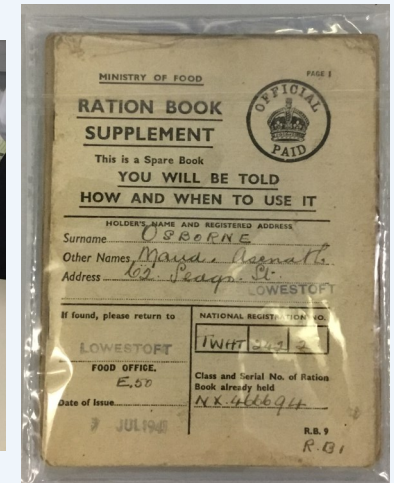 MINISTRY OF FOOD
PAGE 1
OFFICIAL
PAID
RATION BOOK
SUPPLEMENT
This is a Spare Book
YOU WILL BE TOLD
HOW AND WHEN TO USE IT
HOLDER'S NAME AND REGISTERED ADDRESS
Surname OSBORNE
Other Names Maud. Asenath.
Address 62. St.
LOWESTOFT
If found, please return to
LOWESTOFT
FOOD OFFICE.
E.50
Date of Issue
JUL
NATIONAL REGISTRATION NO.
TWHT 242 2
Class and Serial No. of Ration
Book already held
NX.466694
R.B. 9
R.B1